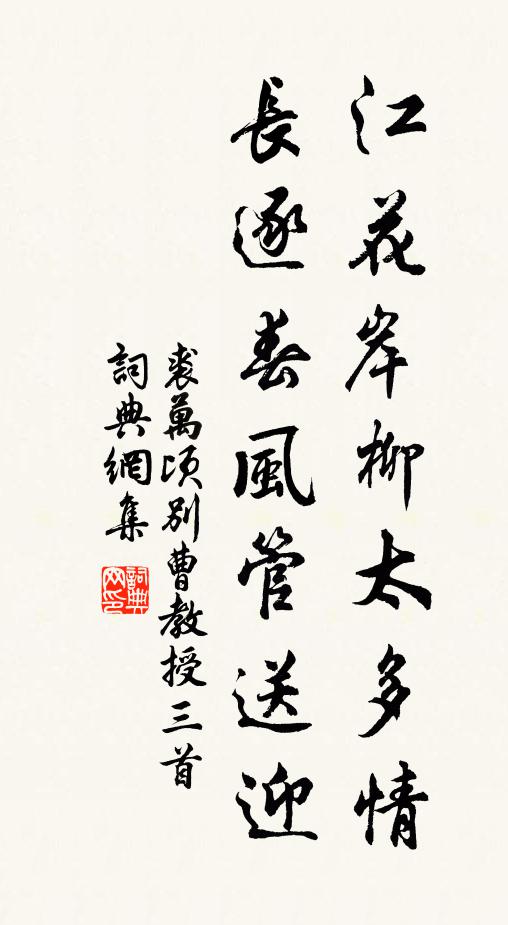 江花岸柳太多情
長逐春風管送迎
裘萬頃別曹教授三首
詞典網集
詞典網印